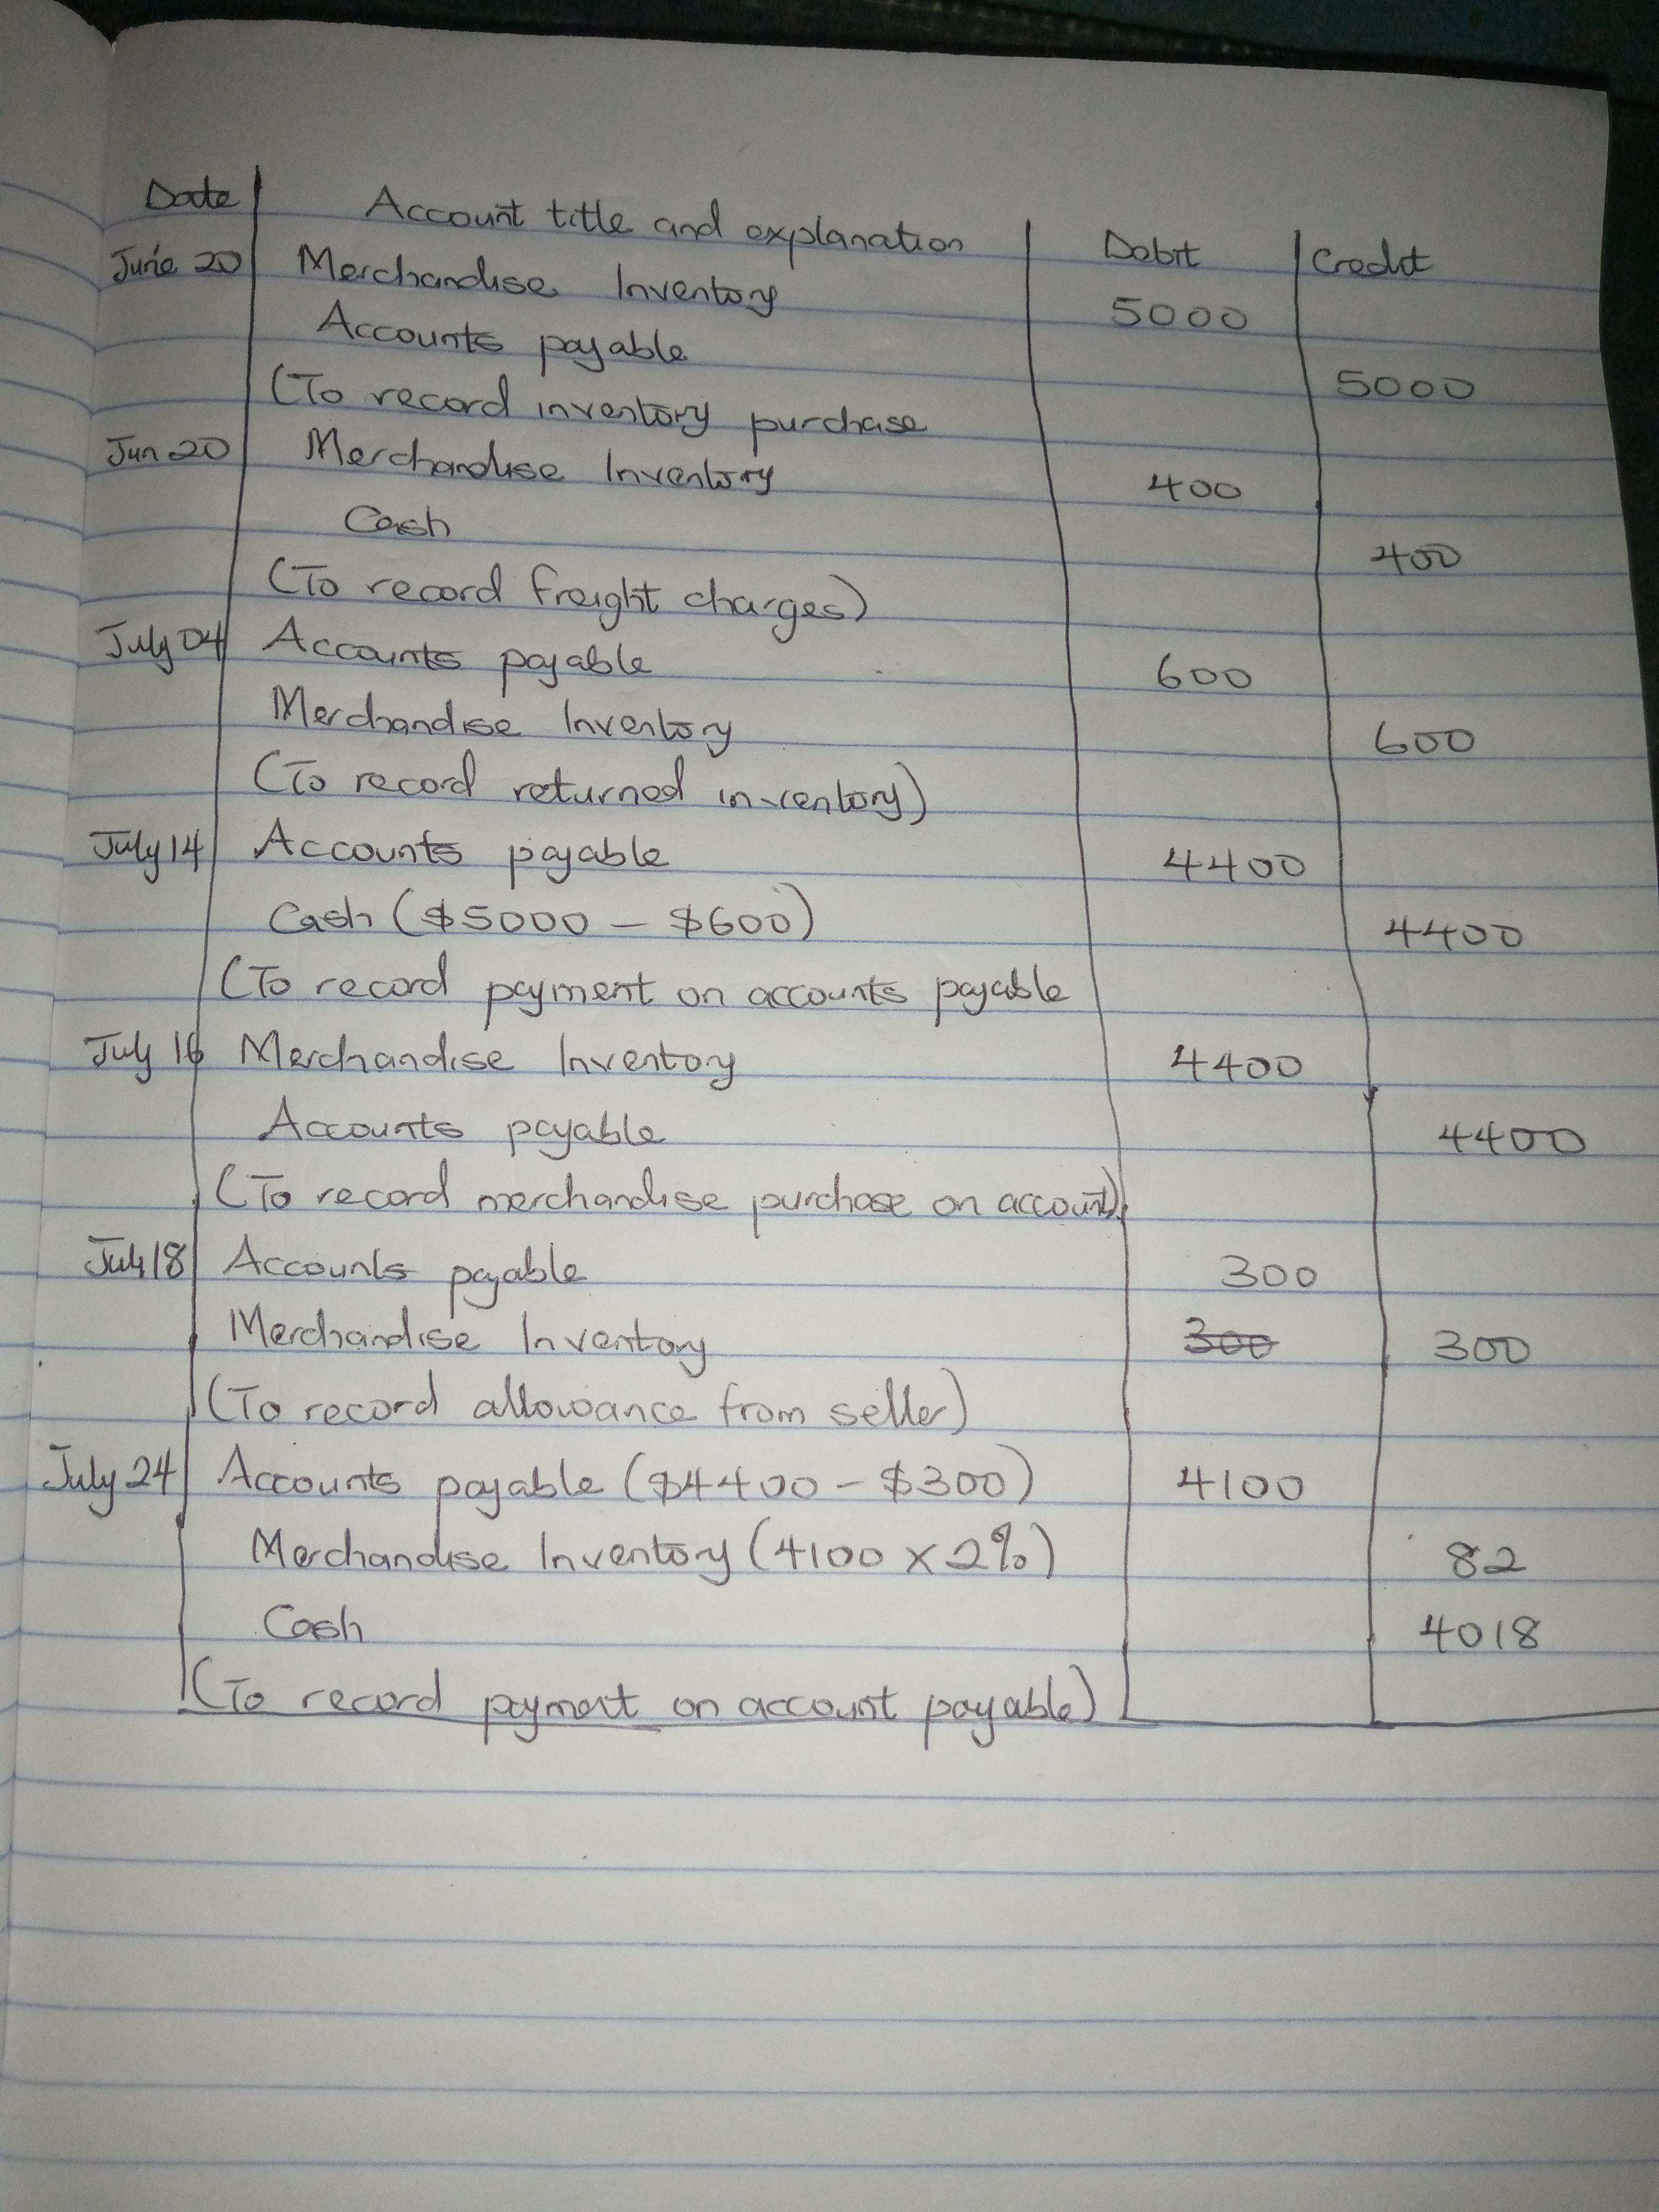 Date Account title and explanation Debit Credit
June 20 Merchandise Inventory 5000
Accounts payable 5000
(To record inventory purchase
Jun 20 Merchandise Inventory 400
Cash 400
(To record freight charges)
July 04 Accounts payable 600
Merchandise Inventory 600
(To record returned inventory)
July 14 Accounts payable 4400
Cash ($5000 - $600) 4400
(To record payment on accounts payable
July 16 Merchandise Inventory 4400
Accounts payable 4400
(To record merchandise purchase on account)
July 18 Accounts payable 300
Merchandise Inventory 300 300
(To record allowance from seller)
July 24 Accounts payable ($4400 - $300) 4100
Merchandise Inventory (4100 x 2%) 82
Cash 4018
(To record payment on account payable)